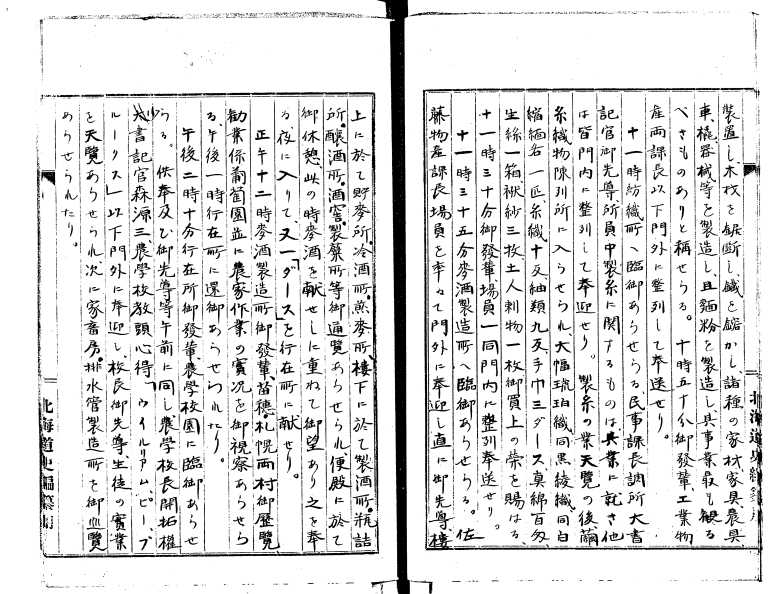 装置し木材を鋸断し鐵を鎔かし、諸種の家材家具農具
車、橇、器械等を製造し、且麺粉を製造し其事業最も観る
べきものありと稱せらる。十時五十分御發輦、工業物
産両課長以下門外に整列して奉送せり。
十一時紡織所へ臨御あらせらる民事課長調所大書
記官御先導所員中製糸に関するものは其業に就き他
は皆門内に整列して奉迎せり。製糸の業天覧の後繭
糸織物陳列所に入らせられ、大幅琥珀織同黒綾織同白
縮緬各一匹糸織十反紬類九反、手巾三ダース真綿百匁、
生絲一箱、袱紗三枚、土人刺物一枚御買上の榮を賜はる、
十一時三十分御發輦、場員一同門内に整列奉送せり。
十一時三十五分麥酒製造所へ臨御あらせらる。佐
藤物産課長、場員を率ゐて門外に奉迎し直に御先導樓
北海道史編纂
上に於て貯麥所、冷酒所、煎麥所、樓下に於て製酒所、瓶詰
所、釀酒所、酒窖、製藥所等御通覧あらせられ、便殿に於て
御休憩此の時麥酒を献せしに重ねて御望あり之を奉
る、夜に入りて又一「ダース」を行在所に献せり。
正午十二時麥酒製造所御發輦、苗穂、札幌両村御歴覧
勧業係葡萄園並に農家作業の實況を御視察あらせら
る、午後一時行在所に還御あらせられたり。
午後二時十分行在所御發輦、農學校園に臨御あらせ
らる。供奉及び御先導等午前に同し農學校長開拓權
大書記官森源三農學校教頭心得「ウイルリアム、ピーブ
ルークス」以下門外に奉迎し、校長御先導、生徒の實業
を天覧あらせられ次に家畜房、排水管製造所を御巡覧
あらせられたり。
北海道史編纂